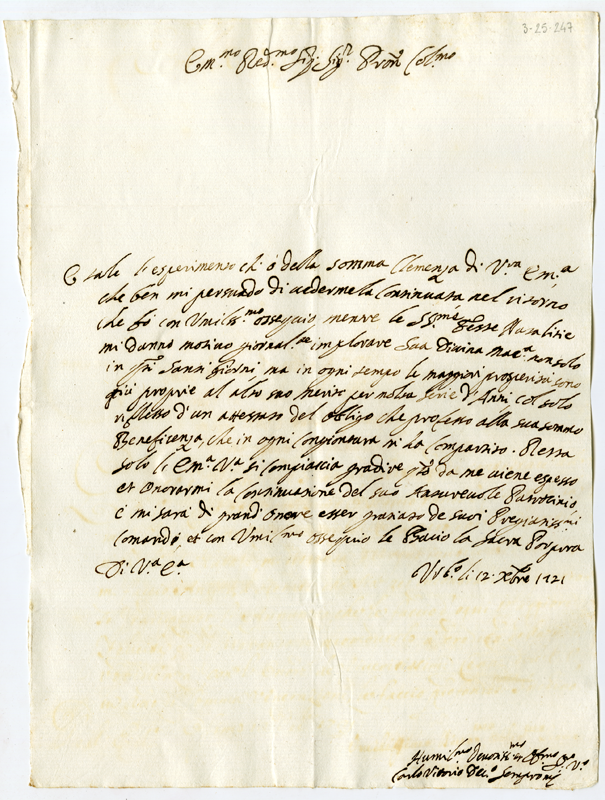 3-25-247
Em.mo Red.mo Sig.r Sig.r Pron. Col.mo
È tale l'esperimento ch'ò della somma Clemenza di V.ra Em.a
che ben mi persuado di vedermela Continuata nel ritorno
che fò con Umiliss.mo ossequio, mentre le SS.me Feste Natalizie
mi danno motivo giornal.te implorare Sua Divina Mae.a non solo
in q.ti Santi Giorni, ma in ogni tempo le maggiori prosperità sono
più proprie al alto suo merito per molta serie d'Anni col solo
riflesso d'un attestato del obligo che professo alla sua somma
Beneficenza, che in ogni Congiontura mi hà Compartito. Resta
solo che Em.a V.a si Compiaccia gradire q.to da me viene espresso
et onorarmi la Continuazione del suo Autorevole Patrocinio,
e mi sarà di grand'onore esser graziato de suoi Pregiatiss.mi
Comandi, et con Umil.mo ossequio le Bacio la Sacra Porpora
Di V.a E.a
Urb.o li 12. Xbre 1721
Humil.mo Devotis.mo Ob.mo Se.re V.o
Carlo Vittorio Sempronij